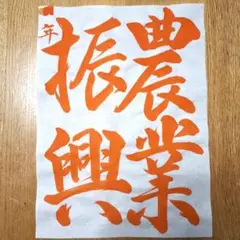 農業
振興
年